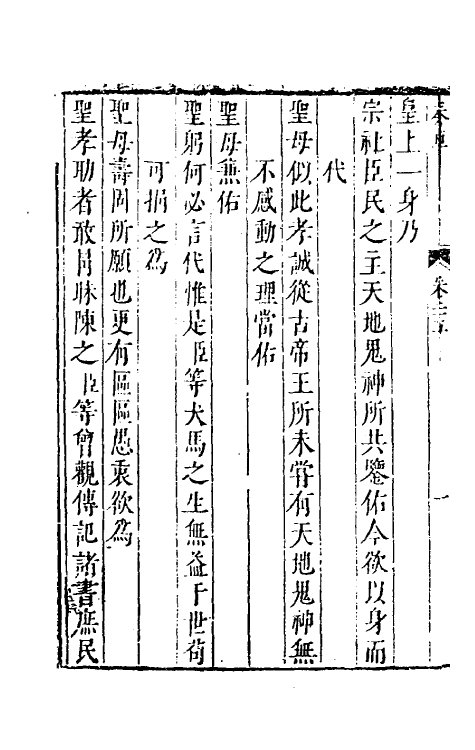 奏
卷二五
一
皇上一身乃
宗社臣民之主天地鬼神所共鑒佑今欲以身而
代
聖母似此孝誠從古帝王所未嘗有天地鬼神無
不感動之理當佑
聖母兼佑
聖躬何必言代惟是臣等犬馬之生無益于世苟
可捐之為
聖母壽固所願也更有區區愚衷欲為
聖孝助者敢冐昧陳之臣等曾觀傳記諸書庶民